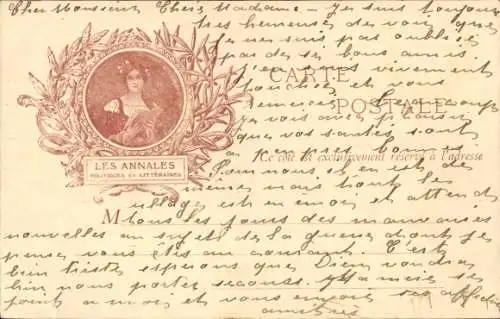 Cher Monsieur Chère Madame – Je suis toujours
très heureuse de voir que
je ne suis pas oubliée
pas de se bons amis.
J'en suis vivement
CARTE
touchée et vous
remercie beaucoup
POSTALE
Je vois avec plaisir
que vos santés sont
à peu près bonnes
Ce côté est exclusivement réservé à l'adresse
LES ANNALES
POLITIQUES ET LITTÉRAIRES
Pour nous, il en est de
même nous tout le
village est en émoi et attend
M
tous les jours des mauvaises
nouvelles au sujet de la guerre dont je
pense vous êtes au courant. C'est
bien triste espérons que Dieu voudra
bien nous porter secours. Ma mère se
joint à moi et vous envoie ses affectueuses
amitiés